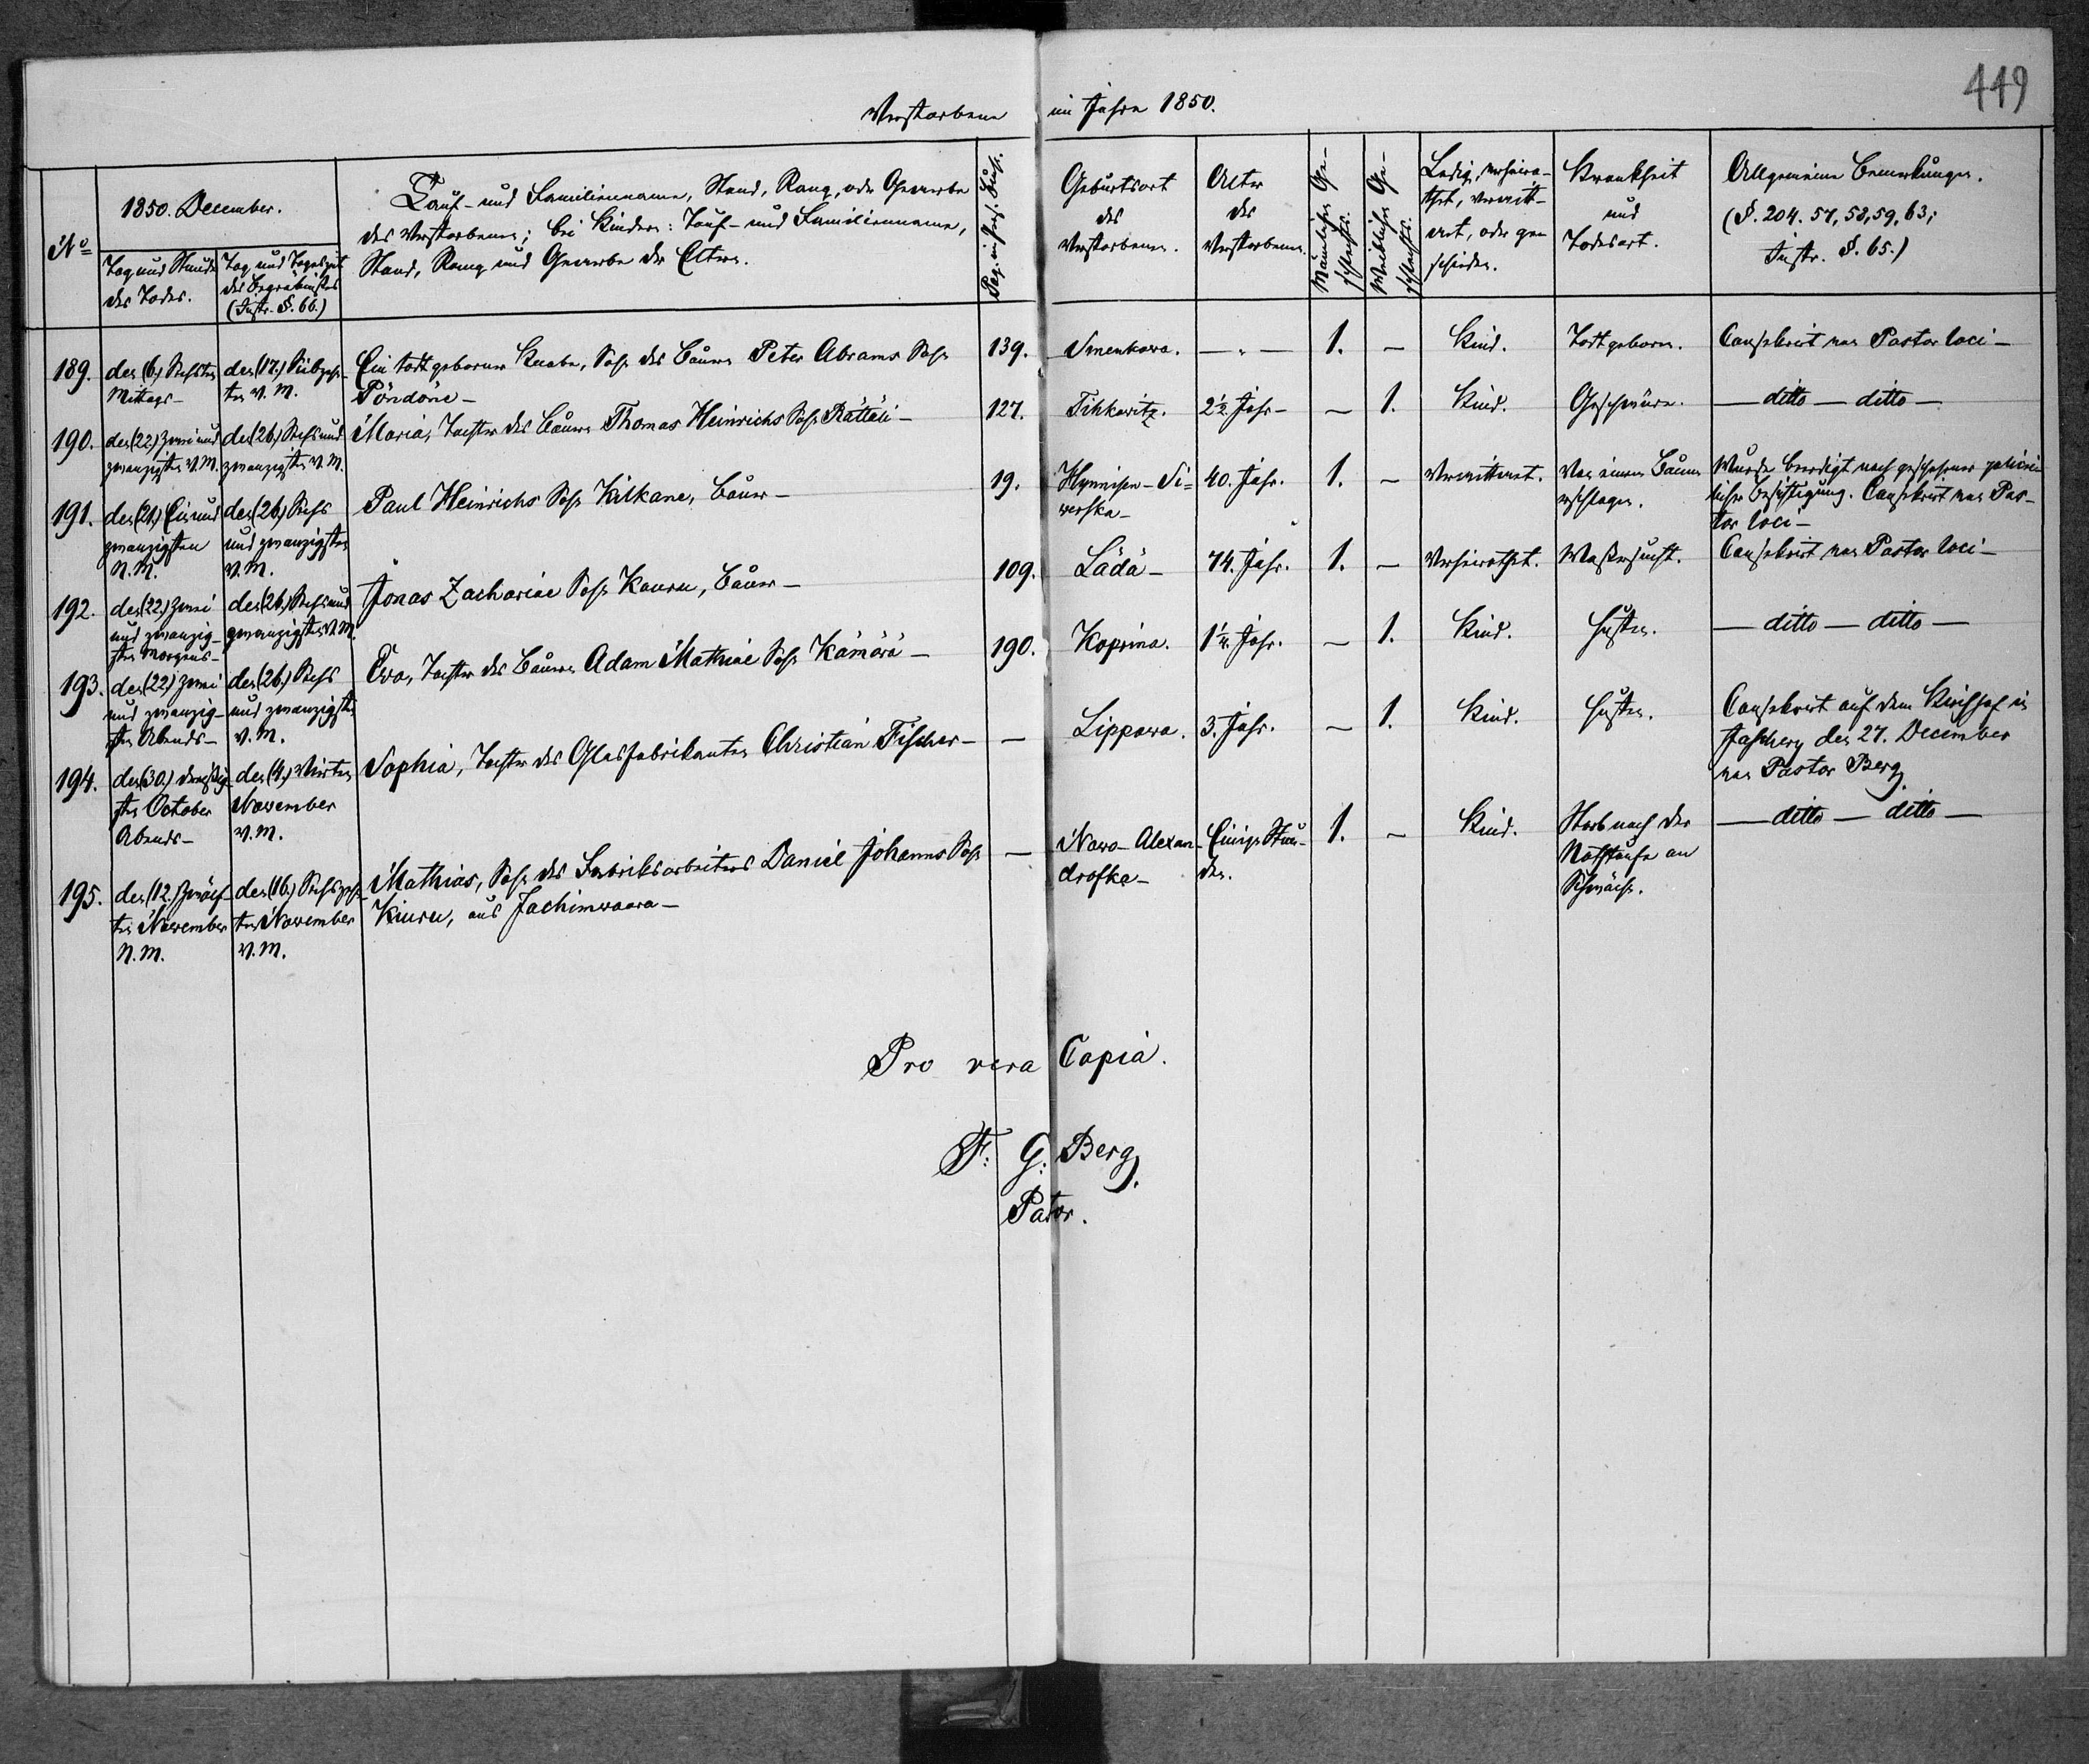 449
Verstorbene im Jahre 1850.
No
1850. December.
Tag und Stunde des Todes.
Tag und Tageszeit des Begräbnißes (Instr. §. 66.)
Tauf- und Familienname, Stand, Rang, oder Gewerbe
des Verstorbenen; bei Kindern: Tauf- und Familienname,
Stand, Rang und Gewerbe der Eltern.
Pag. im Pers. Buch.
Geburtsort des Verstorbenen.
Alter des Verstorbenen.
Männlichen Geschlechts.
Weiblichen Geschlechts.
Ledig, verheirathet, verwittwet, oder geschieden.
Krankheit und Todesart.
Allgemeine Bemerkungen.
(§. 204. 57, 58, 59, 63;
Instr. §. 65.)
189. den (6.) Sechsten Mittags- den (17.) Siebzehnten V. M. Ein todtgeborner Knabe, Sohn des Bauern Peter Abrams Sohn Pöndöne- 139. Smenkowa. — 1. — Kind. Todtgeboren. Consekrirt von Pastor loci-
190. den (22.) Zwei und zwanzigsten V. M. den (26.) Sechs und zwanzigsten V. M. Maria, Tochter des Bauern Thomas Heinrichs Sohn Rätteli- 127. Tihkowitz. 2½ Jahr- — 1. Kind. Geschwüre. — ditto — ditto —
191. den (21.) Ein und zwanzigsten N. M. den (26.) Sechs und zwanzigsten V. M. Paul Heinrichs Sohn Kilkane, Bauer- 19. Hynnisen-Siwerska- 40. Jahr. 1. — Verwittwet. Von einem Baume erschlagen. Wurde beerdigt nach geschehener polizeilicher Besichtigung. Consekrirt von Pastor loci-
192. den (22.) Zwei und zwanzigsten Morgens- den (26.) Sechs und zwanzigsten V. M. Jonas Zachariae Sohn Kauru, Bauer- 109. Lädä- 74. Jahr. 1. — Verheirathet. Waßersucht. Consekrirt von Pastor loci-
193. den (22.) Zwei und zwanzigsten Abends- den (26.) Sechs und zwanzigsten V. M. Eva, Tochter des Bauern Adam Mathiae Sohn Kämärä- 190. Koprina. 1¼ Jahr. — 1. Kind. Husten. — ditto — ditto —
194. den (30.) dreißigsten October Abends- den (4.) Vierten November V. M. Sophia, Tochter des Glasfabrikanten Christian Fischer- — Lippowa. 3. Jahr. — 1. Kind. Husten. Consekrirt auf dem Kirchhof in Jaschery den 27. December von Pastor Berg.
195. den (12.) Zwölften November N. M. den (16.) Sechszehnten November V. M. Mathias, Sohn des Fabriksarbeiters Daniel Johanns Sohn Kiuru, aus Jachimwaara- — Nowo-Alexandrofka- Einige Stunden. 1. — Kind. Starb nach der Nothtaufe an Schwäche. — ditto — ditto —
Pro vera Copia.
F. G. Berg.
Pator.